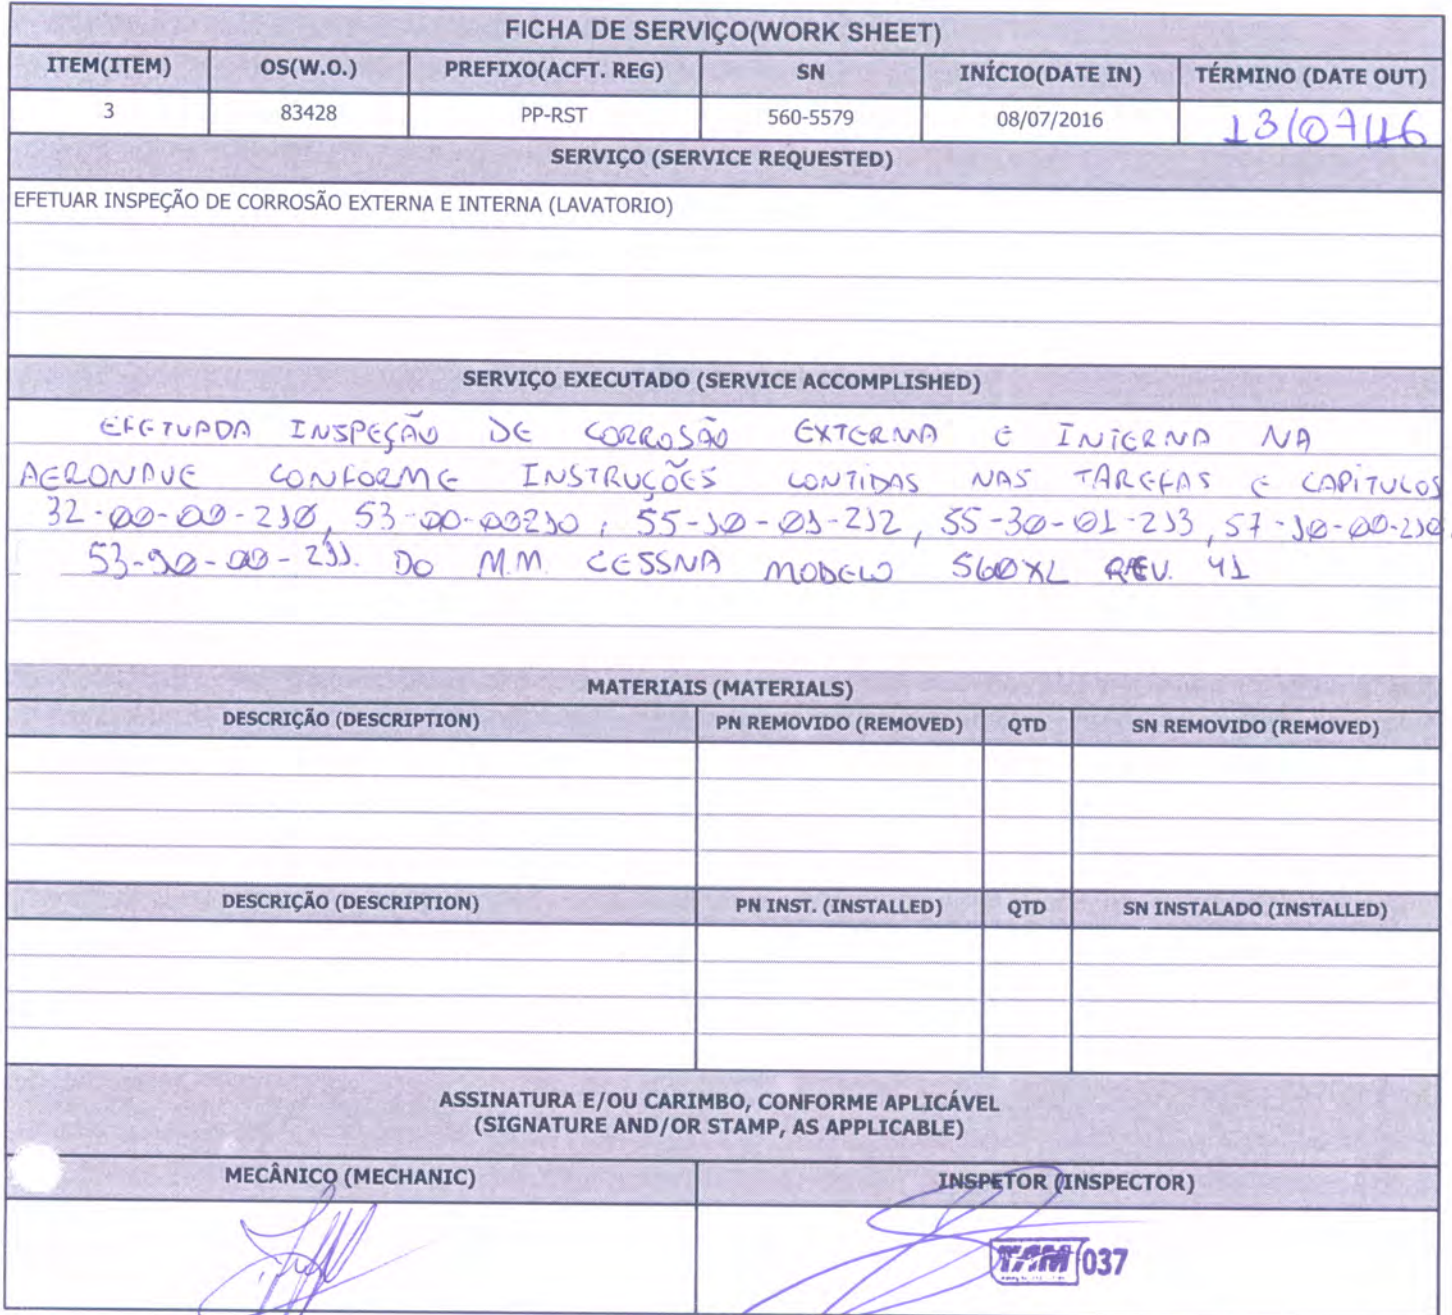 FICHA DE SERVIÇO(WORK SHEET)
ITEM(ITEM) OS(W.O.) PREFIXO(ACFT. REG) SN INÍCIO(DATE IN) TÉRMINO (DATE OUT)
3 83428 PP-RST 560-5579 08/07/2016 13/07/16
SERVIÇO (SERVICE REQUESTED)
EFETUAR INSPEÇÃO DE CORROSÃO EXTERNA E INTERNA (LAVATORIO)
SERVIÇO EXECUTADO (SERVICE ACCOMPLISHED)
EFETUADA INSPEÇÃO DE CORROSÃO EXTERNA E INTERNA NA
AERONAVE CONFORME INSTRUÇÕES CONTIDAS NAS TAREFAS E CAPÍTULOS
32-00-00-210, 53-00-00210, 55-10-01-212, 55-30-01-213, 57-10-00-210,
53-90-00-211. DO M.M. CESSNA MODELO 560XL REV. 41
MATERIAIS (MATERIALS)
DESCRIÇÃO (DESCRIPTION) PN REMOVIDO (REMOVED) QTD SN REMOVIDO (REMOVED)
DESCRIÇÃO (DESCRIPTION) PN INST. (INSTALLED) QTD SN INSTALADO (INSTALLED)
ASSINATURA E/OU CARIMBO, CONFORME APLICÁVEL
(SIGNATURE AND/OR STAMP, AS APPLICABLE)
MECÂNICO (MECHANIC) INSPETOR (INSPECTOR)
TAM 037